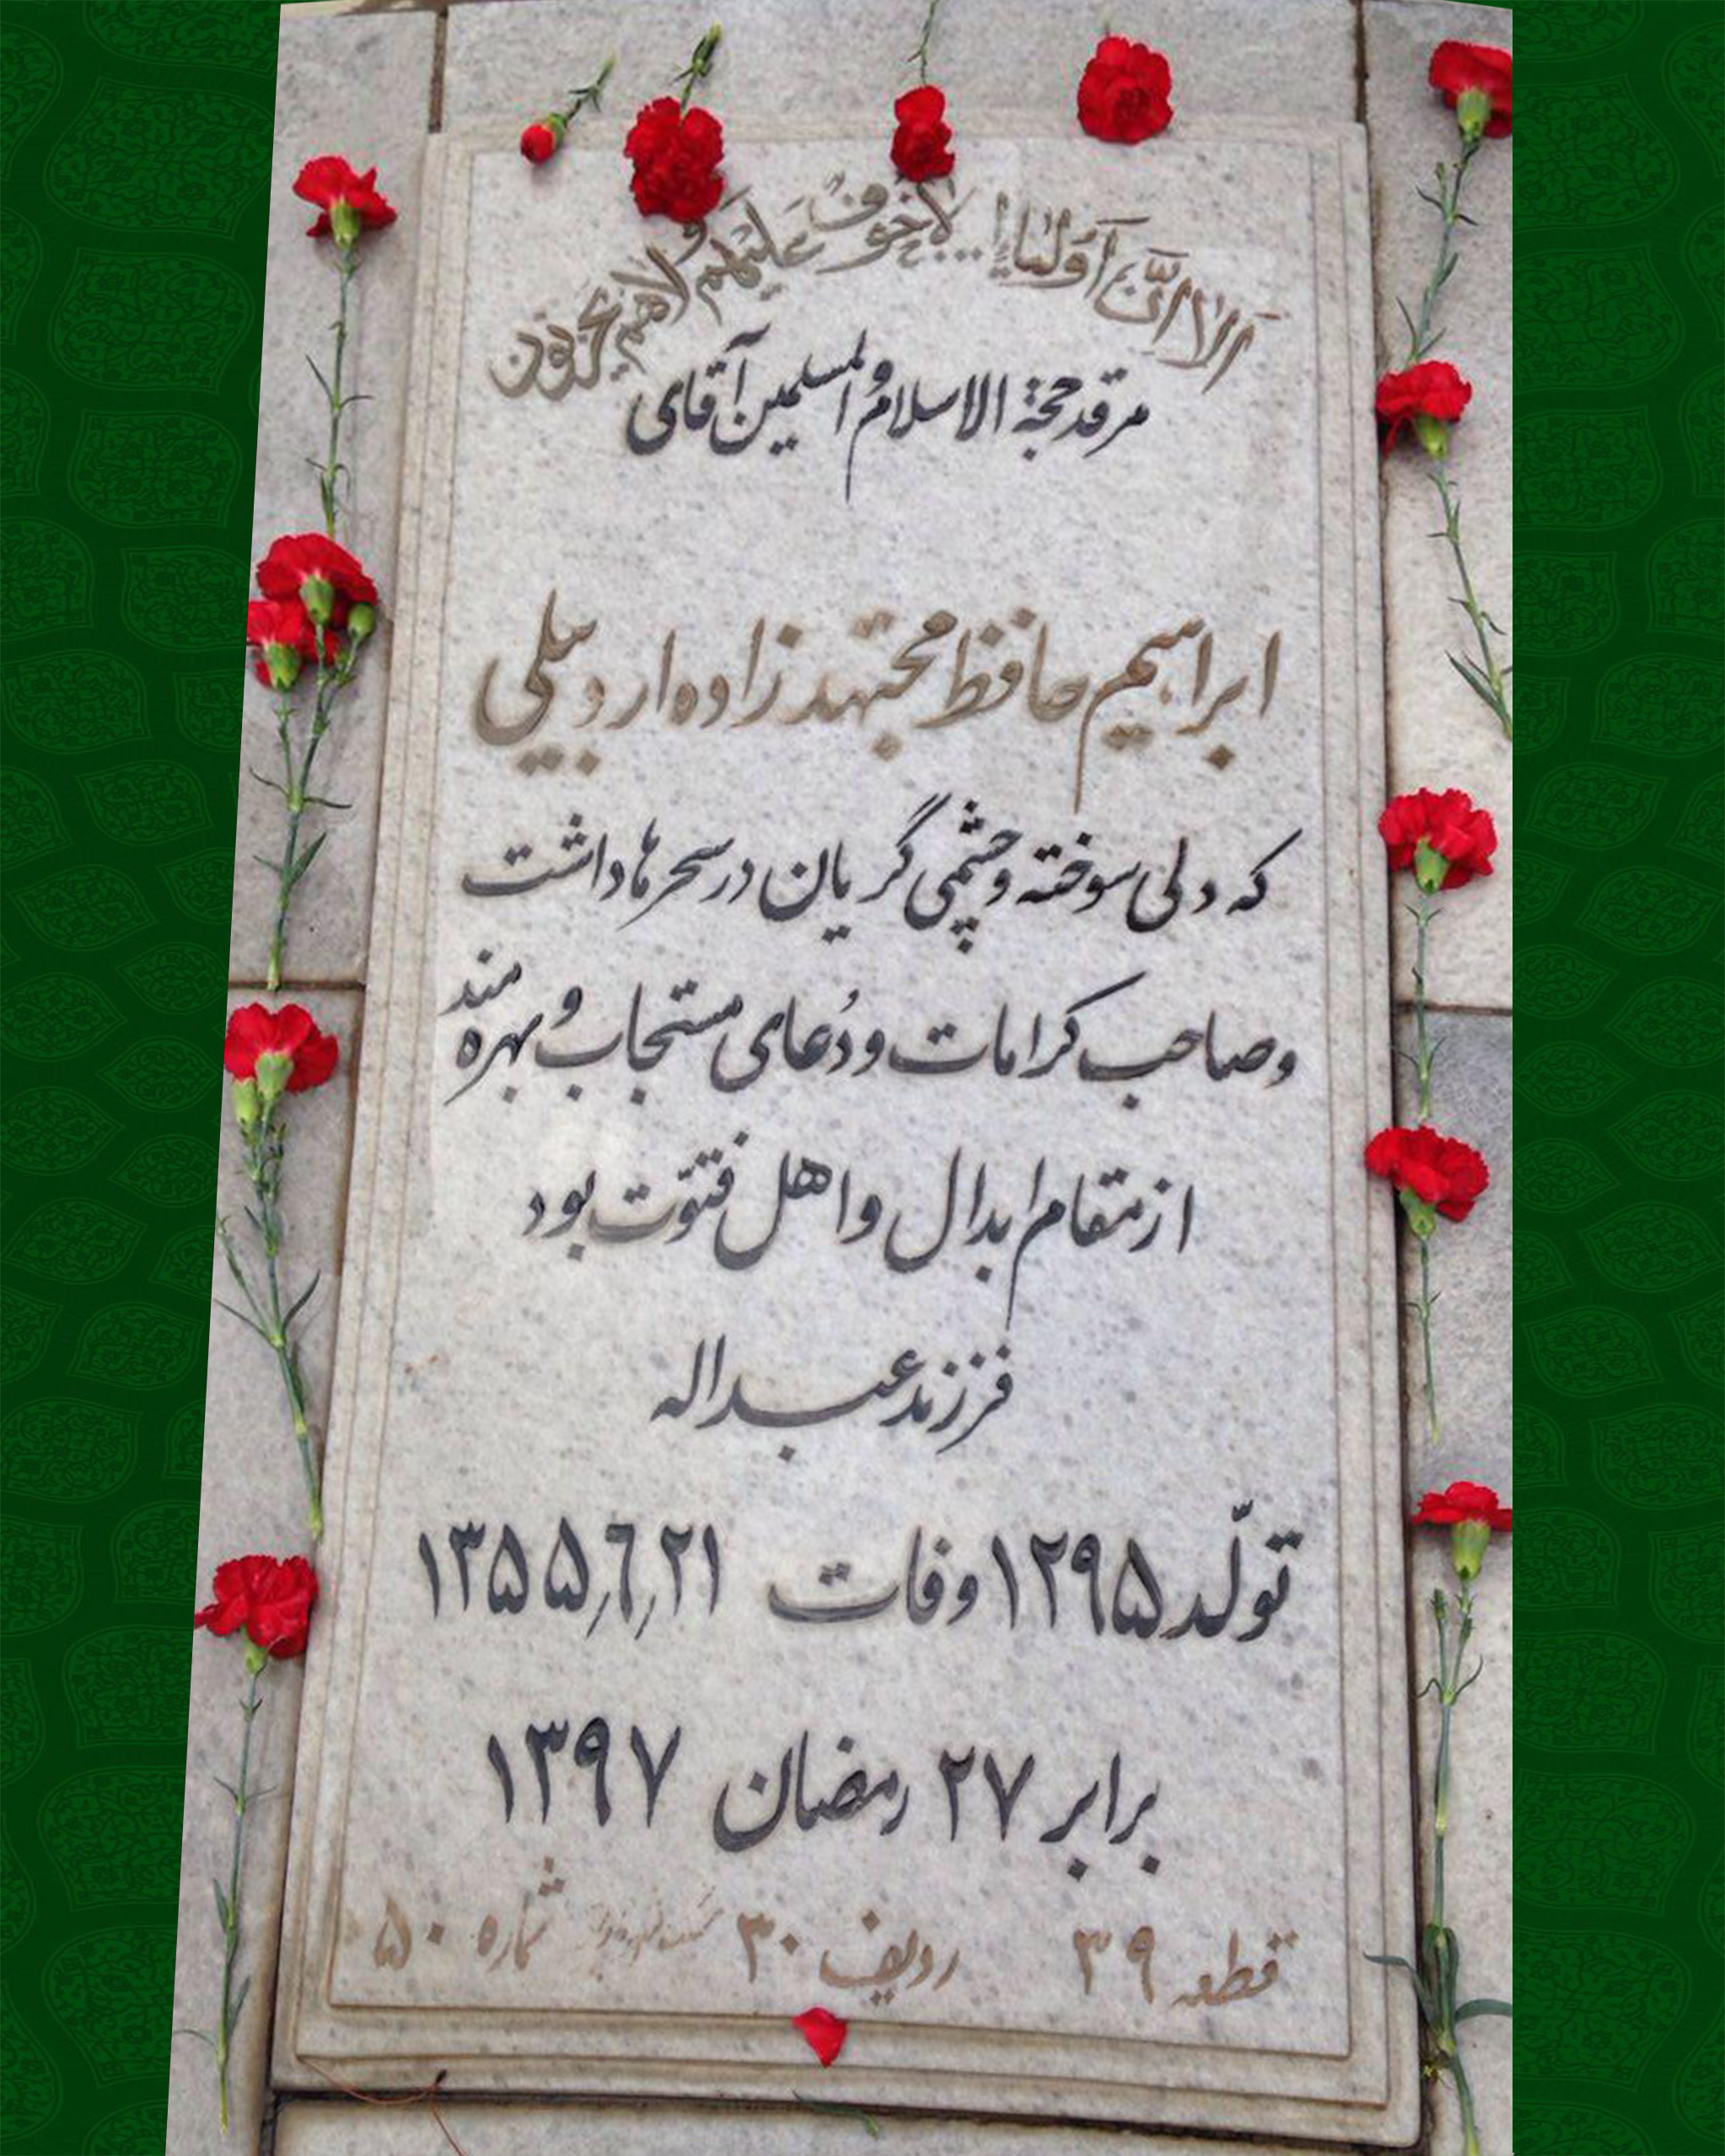 اَلا اِنَّ اَولیاءَ ... لاخَوفٌ عَلَیهِم وَلاهُم یَحزَنون
مرقد حجة الاسلام والمسلمین آقای
ابراهیم حافظ مجتهدزاده اردبیلی
که دلی سوخته و چشمی گریان در سحرها داشت
و صاحب کرامات و دُعای مستجاب و بهره مند
از مقام ابدال و اهل فتوّت بود
فرزند عبداله
تولّد ۱۲۹۵ وفات ۲۱ر۶ر۱۳۵۵۵
برابر ۲۷ رمضان ۱۳۹۷
قطعه ۳۹ ردیف ۳۰ شماره ۵۰